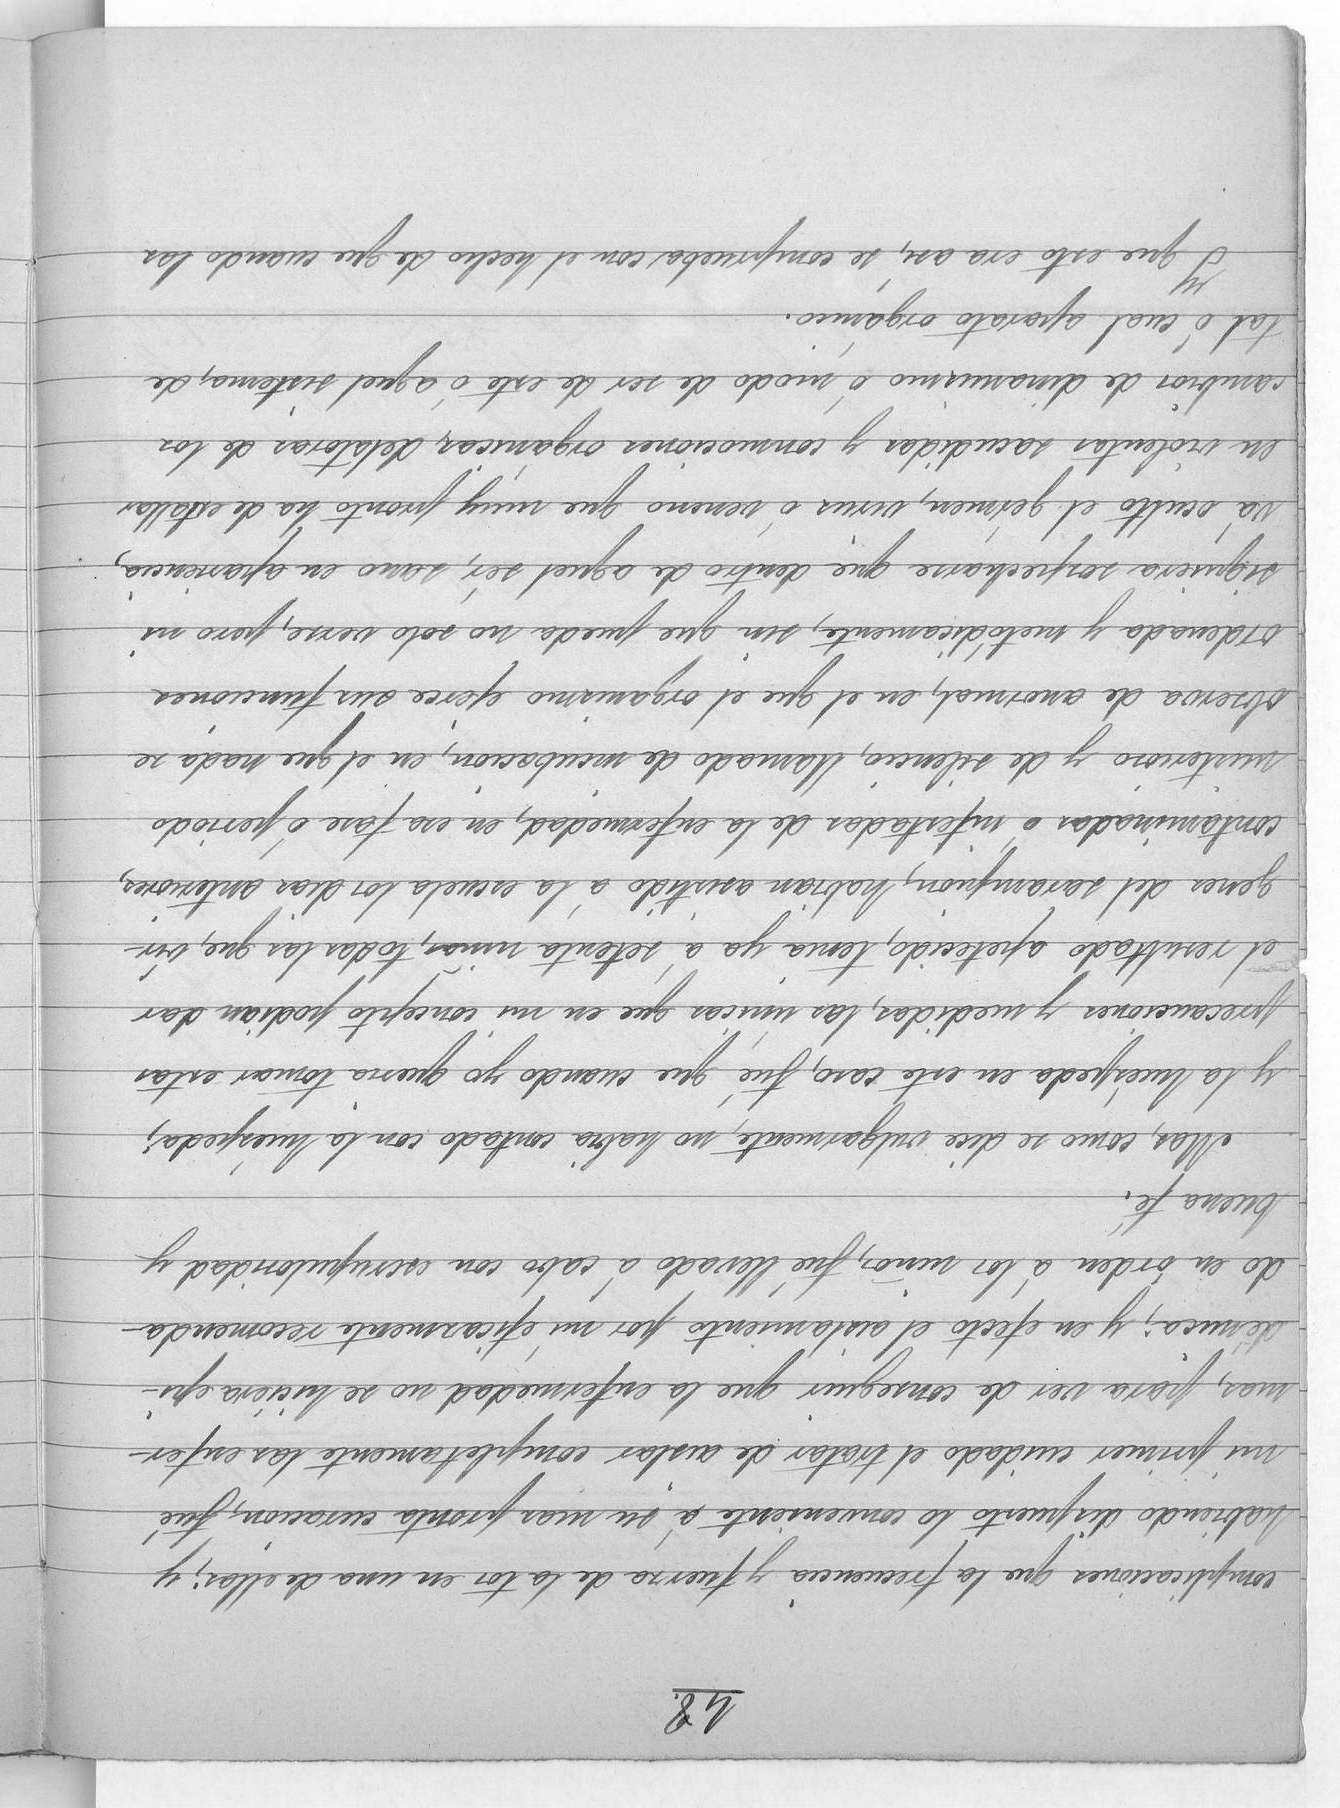 48.
complicaciones que la frecuencia y fuerza de la tos en una de ellas; y
habiendo dispuesto lo conveniente á su mas pronta curacion, fué
mi primer cuidado el tratar de aislar completamente las enfer-
mas, para ver de conseguir que la enfermedad no se hiciera epi-
démica; y en efecto el aislamiento por mi eficazmente recomenda-
do en órden á los niños, fué llevado á cabo con escrupulosidad y
buena fé.
Mas, como se dice vulgarmente, no habia contado con la huéspeda;
y la huéspeda en este caso, fué que cuando yo queria tomar estas
precauciones y medidas, las unicas que en mi concepto podian dar
el resultado apetecido, tenia ya á setenta niñas, todas las que, vir-
genes del sarampion, habian asistido á la escuela los dias anteriores,
contaminadas ó infestadas de la enfermedad, en esa fase ó periodo
misterioso y de silencio, llamado de incubacion, en el que nada se
observa de anormal, en el que el organismo ejerce sus funciones
ordenada y metódicamente, sin que pueda no solo verse, pero ni
siquiera sospecharse que dentro de aquel sér, sano en apariencia,
vá oculto el gérmen, virus ó veneno que muy pronto ha de estallar
en violentas sacudidas y conmociones orgánicas, delatoras de los
cambios de dinamismo ó modo de ser de este ó aquel sistema, de
tal ó cual aparato orgánico.
Y que esto era asi, se comprueba con el hecho de que cuando las